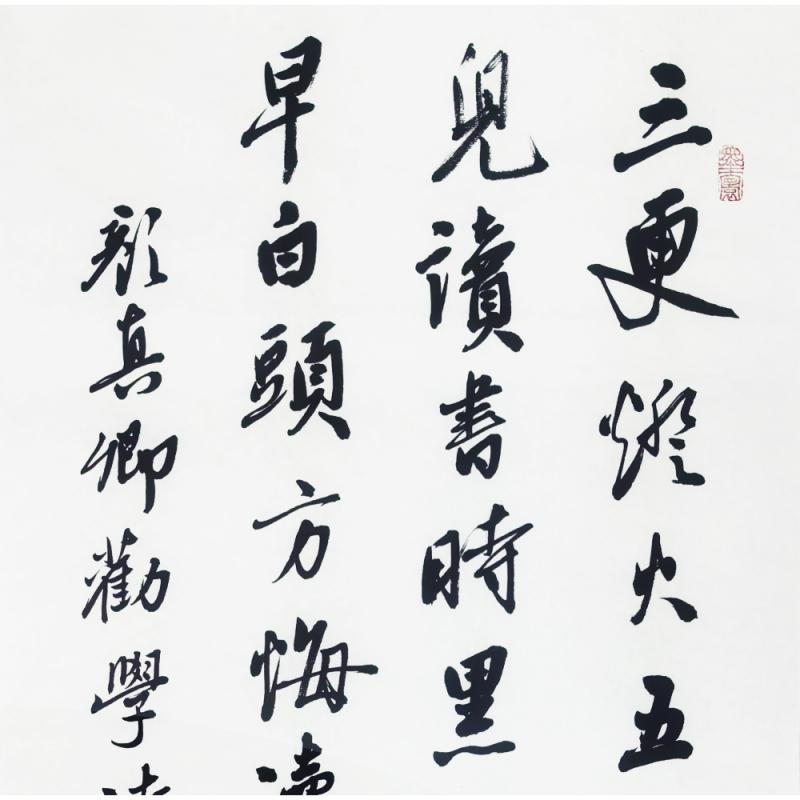 三更燈火五
兒讀書時黑
早白頭方悔
顏真卿勸學